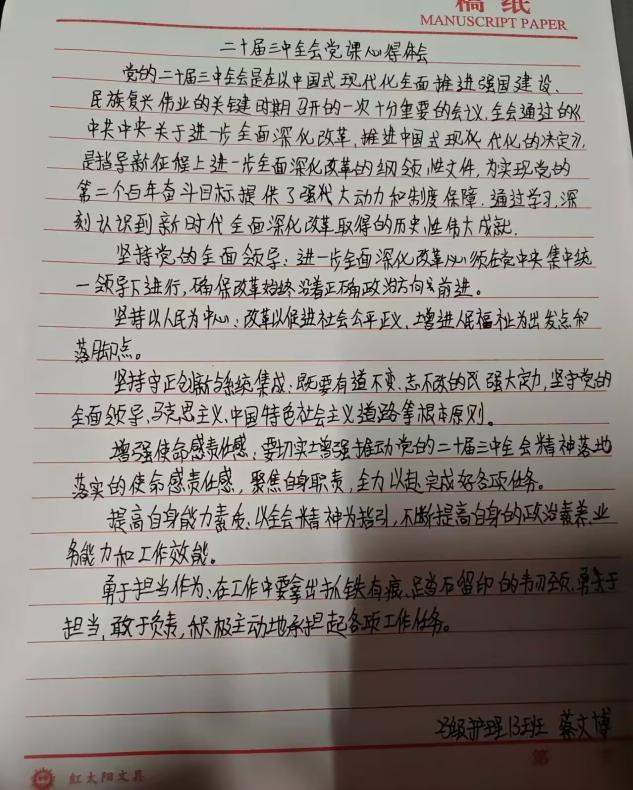 稿纸
MANUSCRIPT PAPER
二十届三中全会党课心得体会
党的二十届三中全会是在以中国式现代化全面推进强国建设、
民族复兴伟业的关键时期召开的一次十分重要的会议,全会通过的《
中共中央关于进一步全面深化改革,推进中国式现代化的决定》,
是指导新征程上进一步全面深化改革的纲领性文件,为实现党的
第二个百年奋斗目标提供了强大动力和制度保障.通过学习,深
刻认识到新时代全面深化改革取得的历史性伟大成就.
坚持党的全面领导:进一步全面深化改革必须在党中央集中统
一领导下进行,确保改革始终沿着正确政治方向前进。
坚持以人民为中心:改革以促进社会公平正义,增进人民福祉为出发点和
落脚点。
坚持守正创新与系统集成:既要有道不变、志不改的强大定力,坚守党的
全面领导、马克思主义、中国特色社会主义道路等根本原则。
增强使命感责任感:要切实增强推动党的二十届三中全会精神落地
落实的使命感责任感,聚焦自身职责,全力以赴完成好各项任务。
提高自身能力素质:以全会精神为指引,不断提高自身的政治素养、业
务能力和工作效能。
勇于担当作为:在工作中要拿出抓铁有痕、踏石留印的韧劲,勇于
担当,敢于负责,积极主动地承担起各项工作任务。
级护理13班 蔡文博
第
红太阳文具